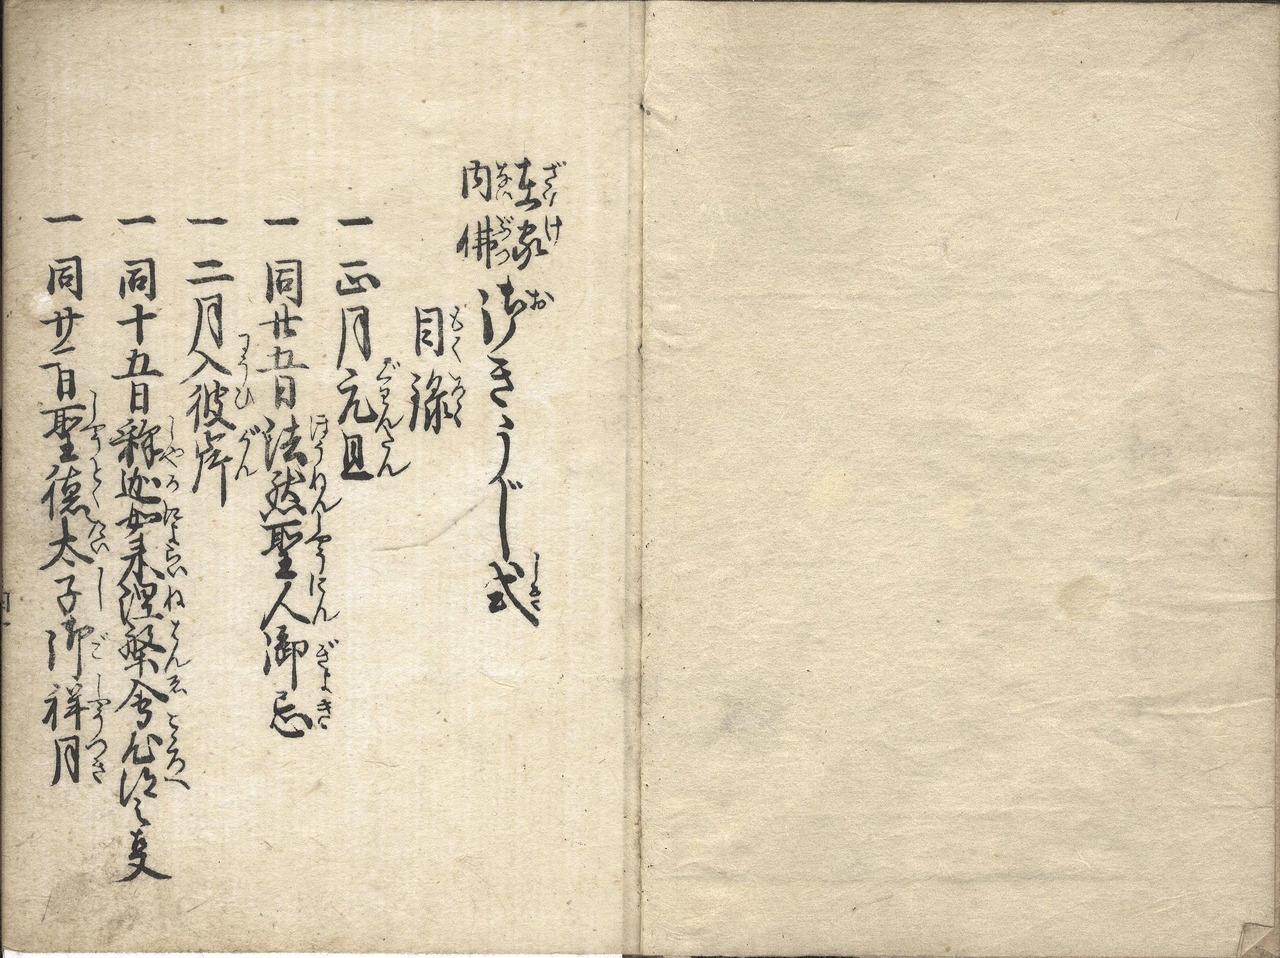 在家
内佛
御きうじ式
目録
一 正月元旦
一 同廿五日法然聖人御忌
一 二月入彼岸
一 同十五日釈迦如来涅槃會心得之支
一 同廿二日聖徳太子御祥月
ざいけ
ないぶつ
お
しき
もくろく
ぐわんたん
ほうねんしやうにん ぎよき
にうひがん
しやかによらいねはんゑ こころへ
しやうとくたいし ごしやうつき